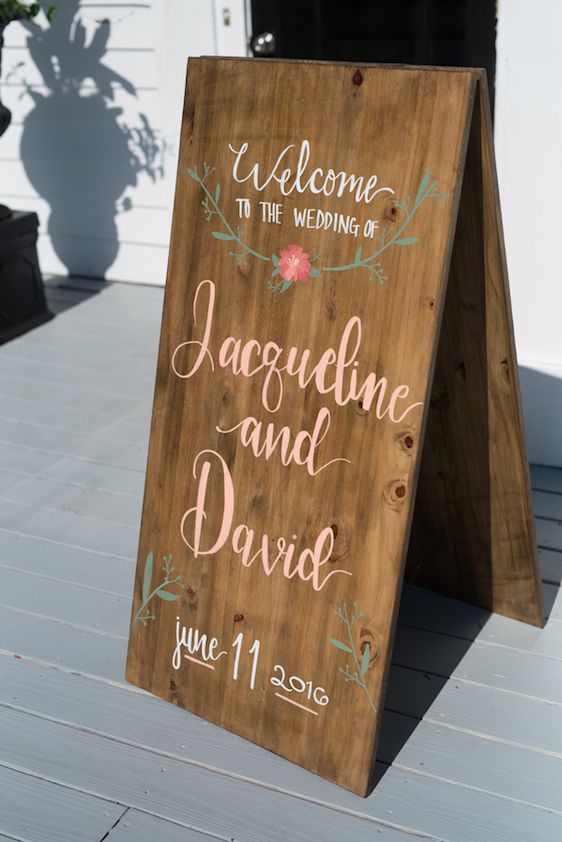 Welcome
TO THE WEDDING OF
Jacqueline
and
David
june 11 2016